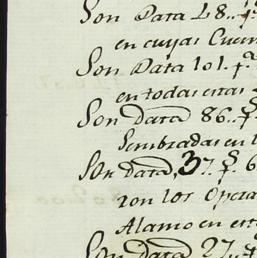 Son Data 48.. p.s
en cuyas Cuen
Son Data 101. p.s
en todas estas
Son data 86.. p.s
Sembradas en l
Son data, 37. p.s 6
con los Opera
Alamo en est
Son data 27..